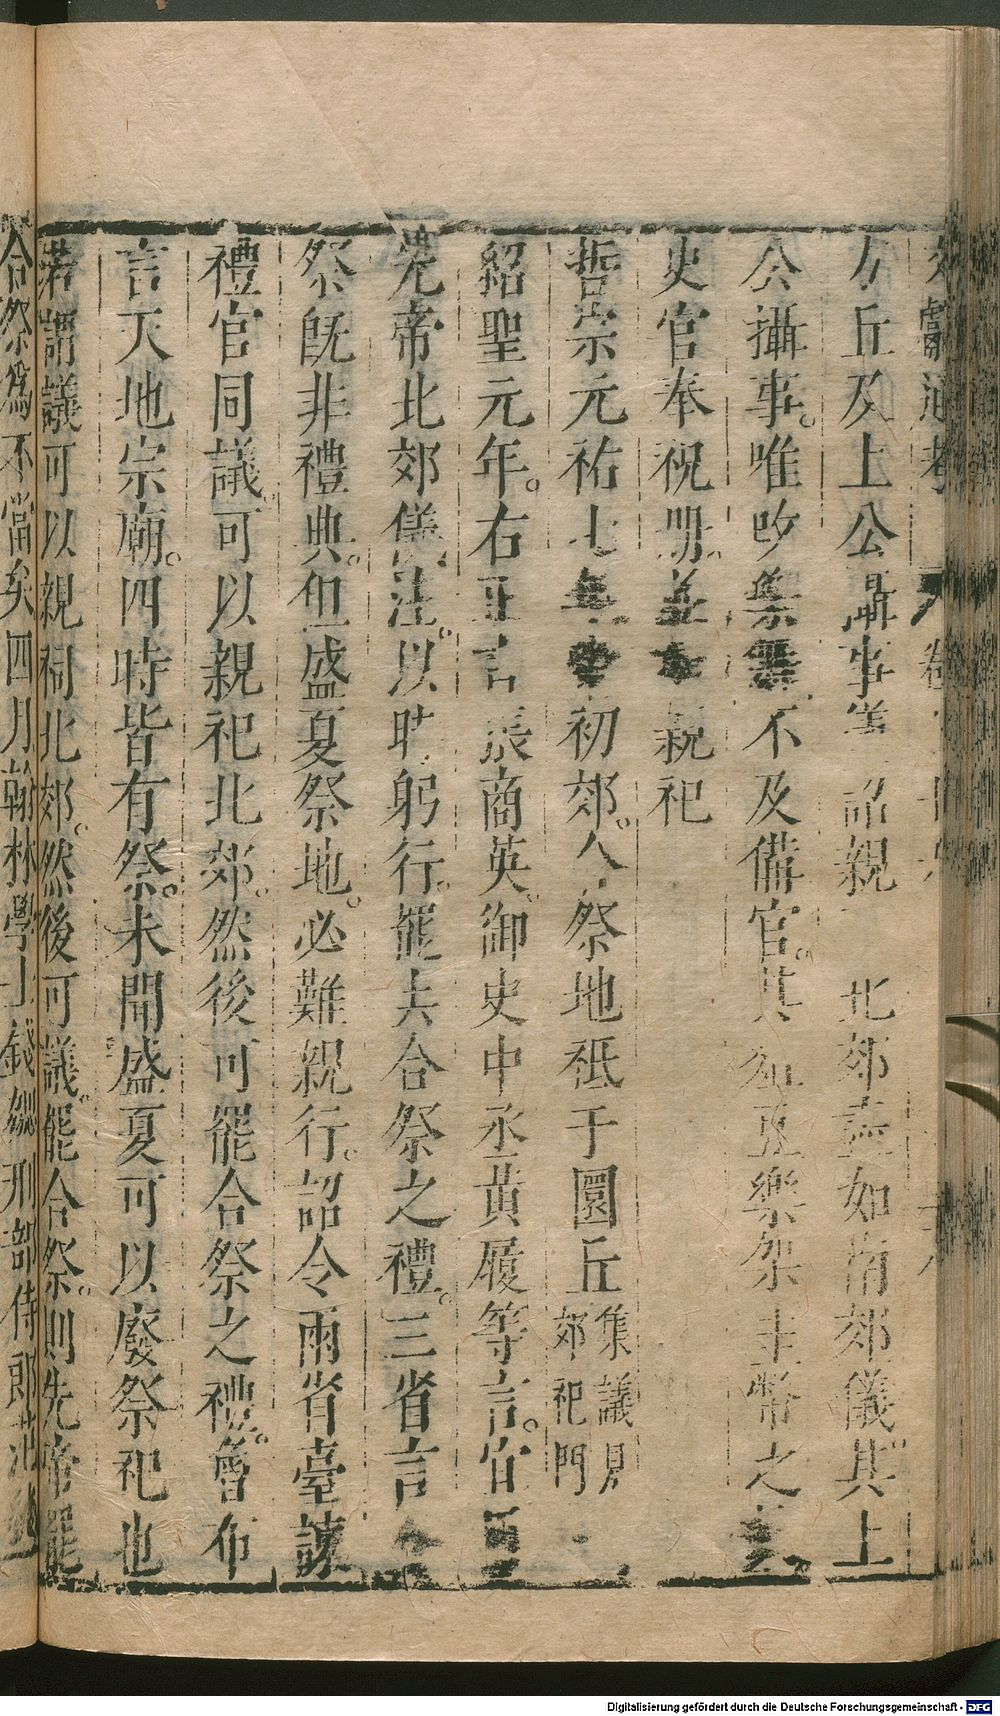 方丘及上公攝事詔親北郊如南郊儀其上
公攝事唯改不及備官其俎豆樂架圭幣之
史官奉祝册親祀
哲宗元祐七初郊合祭地祗于圜丘集議見郊祀門
紹聖元年右正言張商英御史中丞黃履等言宜
先帝北郊儀注以時躬行罷去合祭之禮三省言合
祭旣非禮典但盛夏祭地必難親行詔令兩省臺諫
禮官同議可以親祀北郊然後可罷合祭之禮曾布
言天地宗廟四時皆有祭未聞盛夏可以廢祭祀也
若謂議可以親祠北郊然後可議罷合祭則先帝罷
合祭爲不當矣四月翰林學士錢勰刑部侍郎范
Digitalisierung gefördert durch die Deutsche Forschungsgemeinschaft - DFG